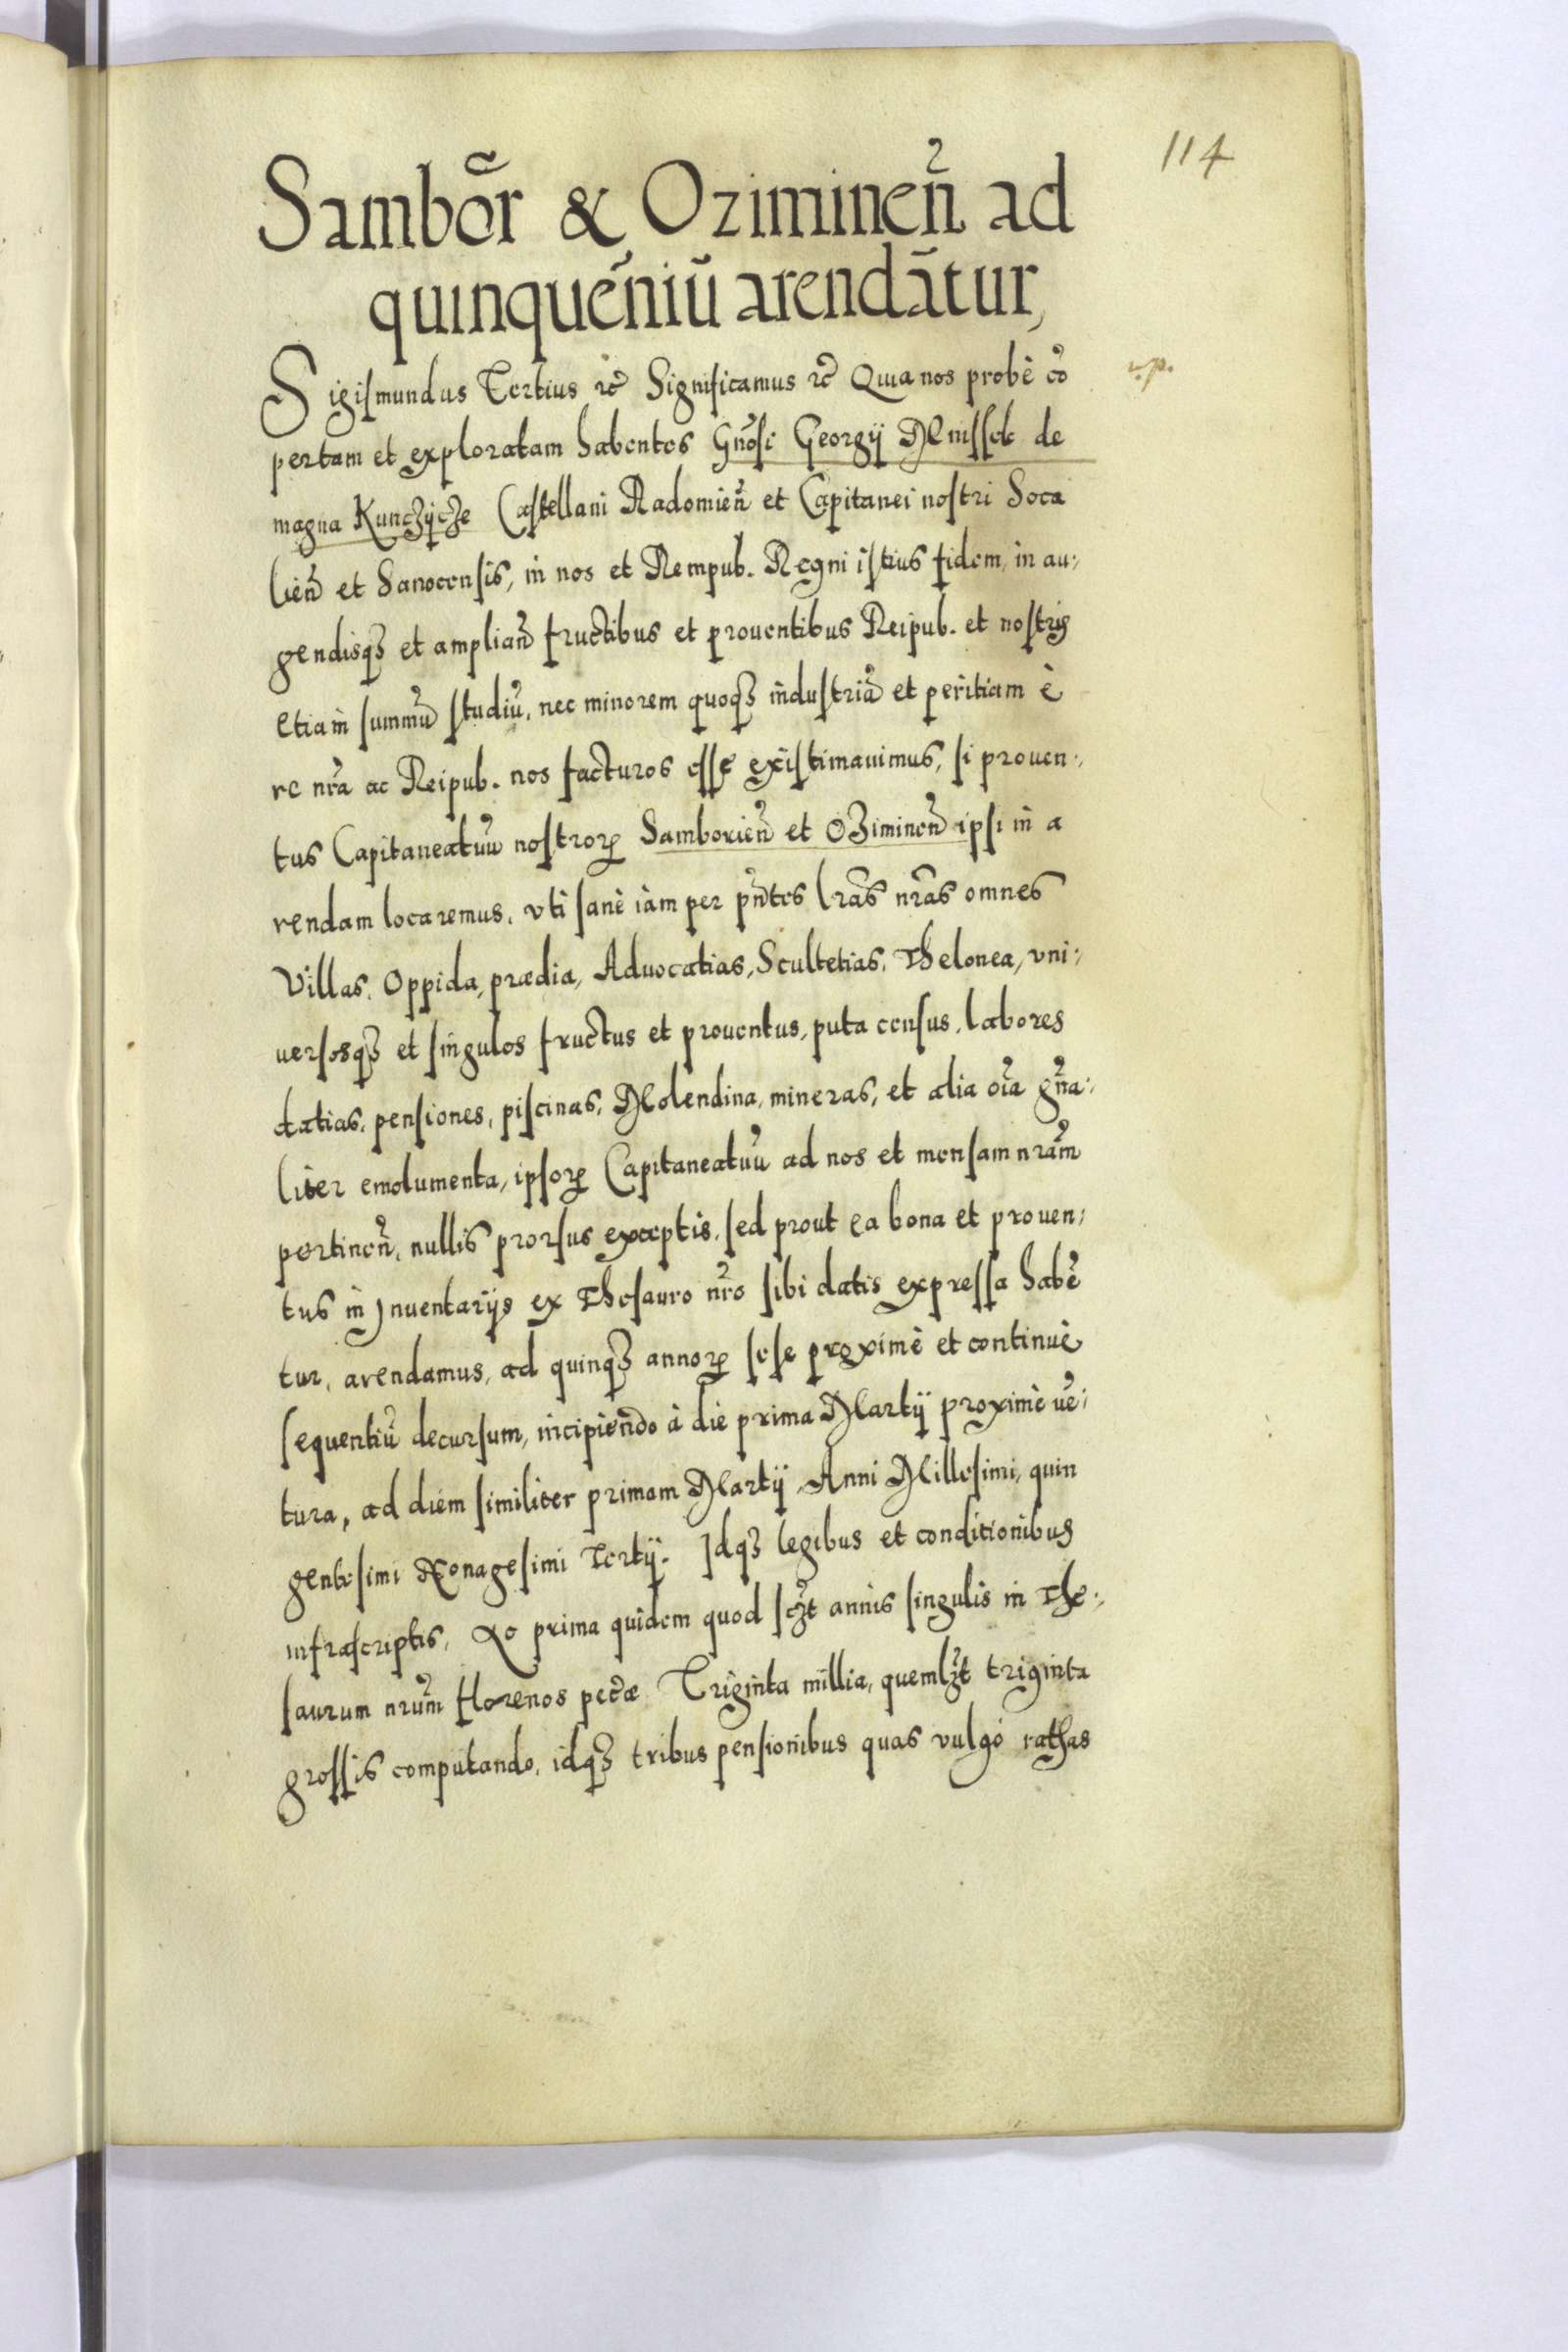 114
Sambor̃ & Oziminen̄ ad
quinquēniū arendātur,
Sigismundus Tertius etc̃ Significamus etc̃ Quia nos probè cõ
pertam et exploratam habentes Gñosi Georgij Mnissek de
magna Kunczÿcze Castellani Radomieñ et Capitanei nostri Soca
lieñ et Sanocensis, in nos et Rempub. Regni istius fidem, in au:
gendisqȝ et ampliañ fructibus et prouentibus Reipub. et nostris
etiam summũ studiũ, nec minorem quoqȝ industriã et peritiam è
re nr̃a ac Reipub. nos facturos esse existimauimus, si prouen:
tus Capitaneatuũ nostroꝝ Samborieñ et Oȝimineñ ipsi in a
rendam locaremus, vti sanè iàm per pñtes lr̃as nr̃as omnes
Villas, Oppida, prædia, Aduocatias, Scultetias, Thelonea, vni:
uersosqȝ et singulos fructus et prouentus, puta census, labores
datias, pensiones, piscinas, Molendina, mineras, et alia oĩa gña:
liter emolumenta, ipsoꝝ Capitaneatuũ ad nos et mensam nrãm
pertineñ, nullis prorsus exceptis, sed prout ea bona et prouen:
tus in Jnuentarijs ex Thesauro nr̃o sibi datis expressa habẽ
tur, arendamus, ad quinqȝ annoꝝ sese proximè et continuè
sequentiũ decursum, incipieñdo à die prima Martij proximè uẽ:
tura, ad diem similiter primam Martij, Anni Millesimi, quin
gentesimi Nonagesimi Tertij. Jdqȝ legibus et conditionibus
infrascriptis, Ac prima quidem quod sc̃ȝt annis singulis in The:
saurum nrũm florenos pecũæ Triginta millia, quemlȝ̃t triginta
grossis computando, idqȝ tribus pensionibus quas vulgò rathas